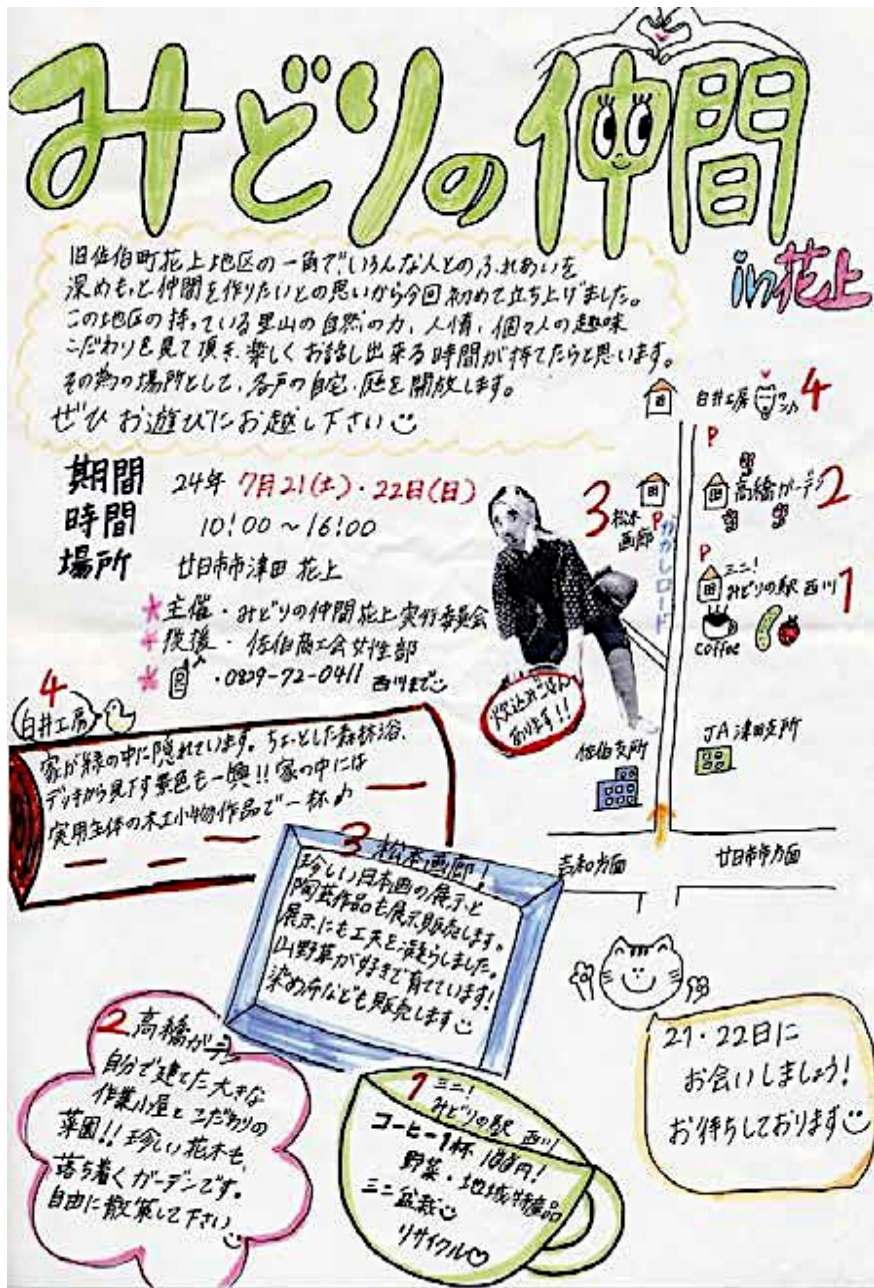 みどりの仲間
in花上
旧佐伯町花上地区の一角で、いろんな人とのふれあいを
深めもっと仲間を作りたいとの思いから今回初めて立ち上げました。
この地区の持っている里山の自然の力、人情、個々人の趣味
こだわりを見て頂き、楽しくお話し出来る時間が持てたらと思います。
その為の場所として、各戸の自宅・庭を開放します。
ぜひお遊びにお越し下さい
期間 24年 7月21(土)・22日(日)
時間 10:00～16:00
場所 廿日市市津田 花上
主催・みどりの仲間花上実行委員会
後援・佐伯商工会女性部
・0829-72-0411 西川まで
白井工房 ワン 4
P
高橋ガーデン 2
3 松本画廊 P
かかしロード
P
ミニ!
みどりの駅 西川 1
coffee
炊込みごはん
あります!!
佐伯支所
JA津田支所
吉和方面
廿日市市方面
4
白井工房
家が緑の中に隠れています。ちょっとした森林浴、
デッキから見下す景色も一興!!家の中には
実用主体の木工小物作品で一杯♪
3 松本画廊!
珍しい日本画の展示と
陶芸作品も展示販売します。
展示にも工夫を凝らしました。
山野草が好きで育てています!
染め布なども販売します
2 高橋ガーデン
自分で建てた大きな
作業小屋とこだわりの
菜園!!珍しい花木も、
落ち着くガーデンです。
自由に散策して下さい
1 ミニ!
みどりの駅 西川
コーヒー1杯 100円!
野菜・地域特産品
ミニ盆栽
リサイクル♡
21・22日に
お会いしましょう!
お待ちしております